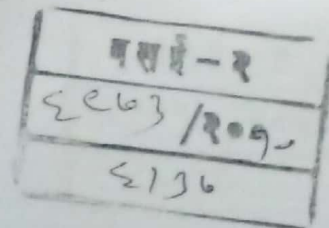 वसई - २
६९७३ /२०१०
६/३७